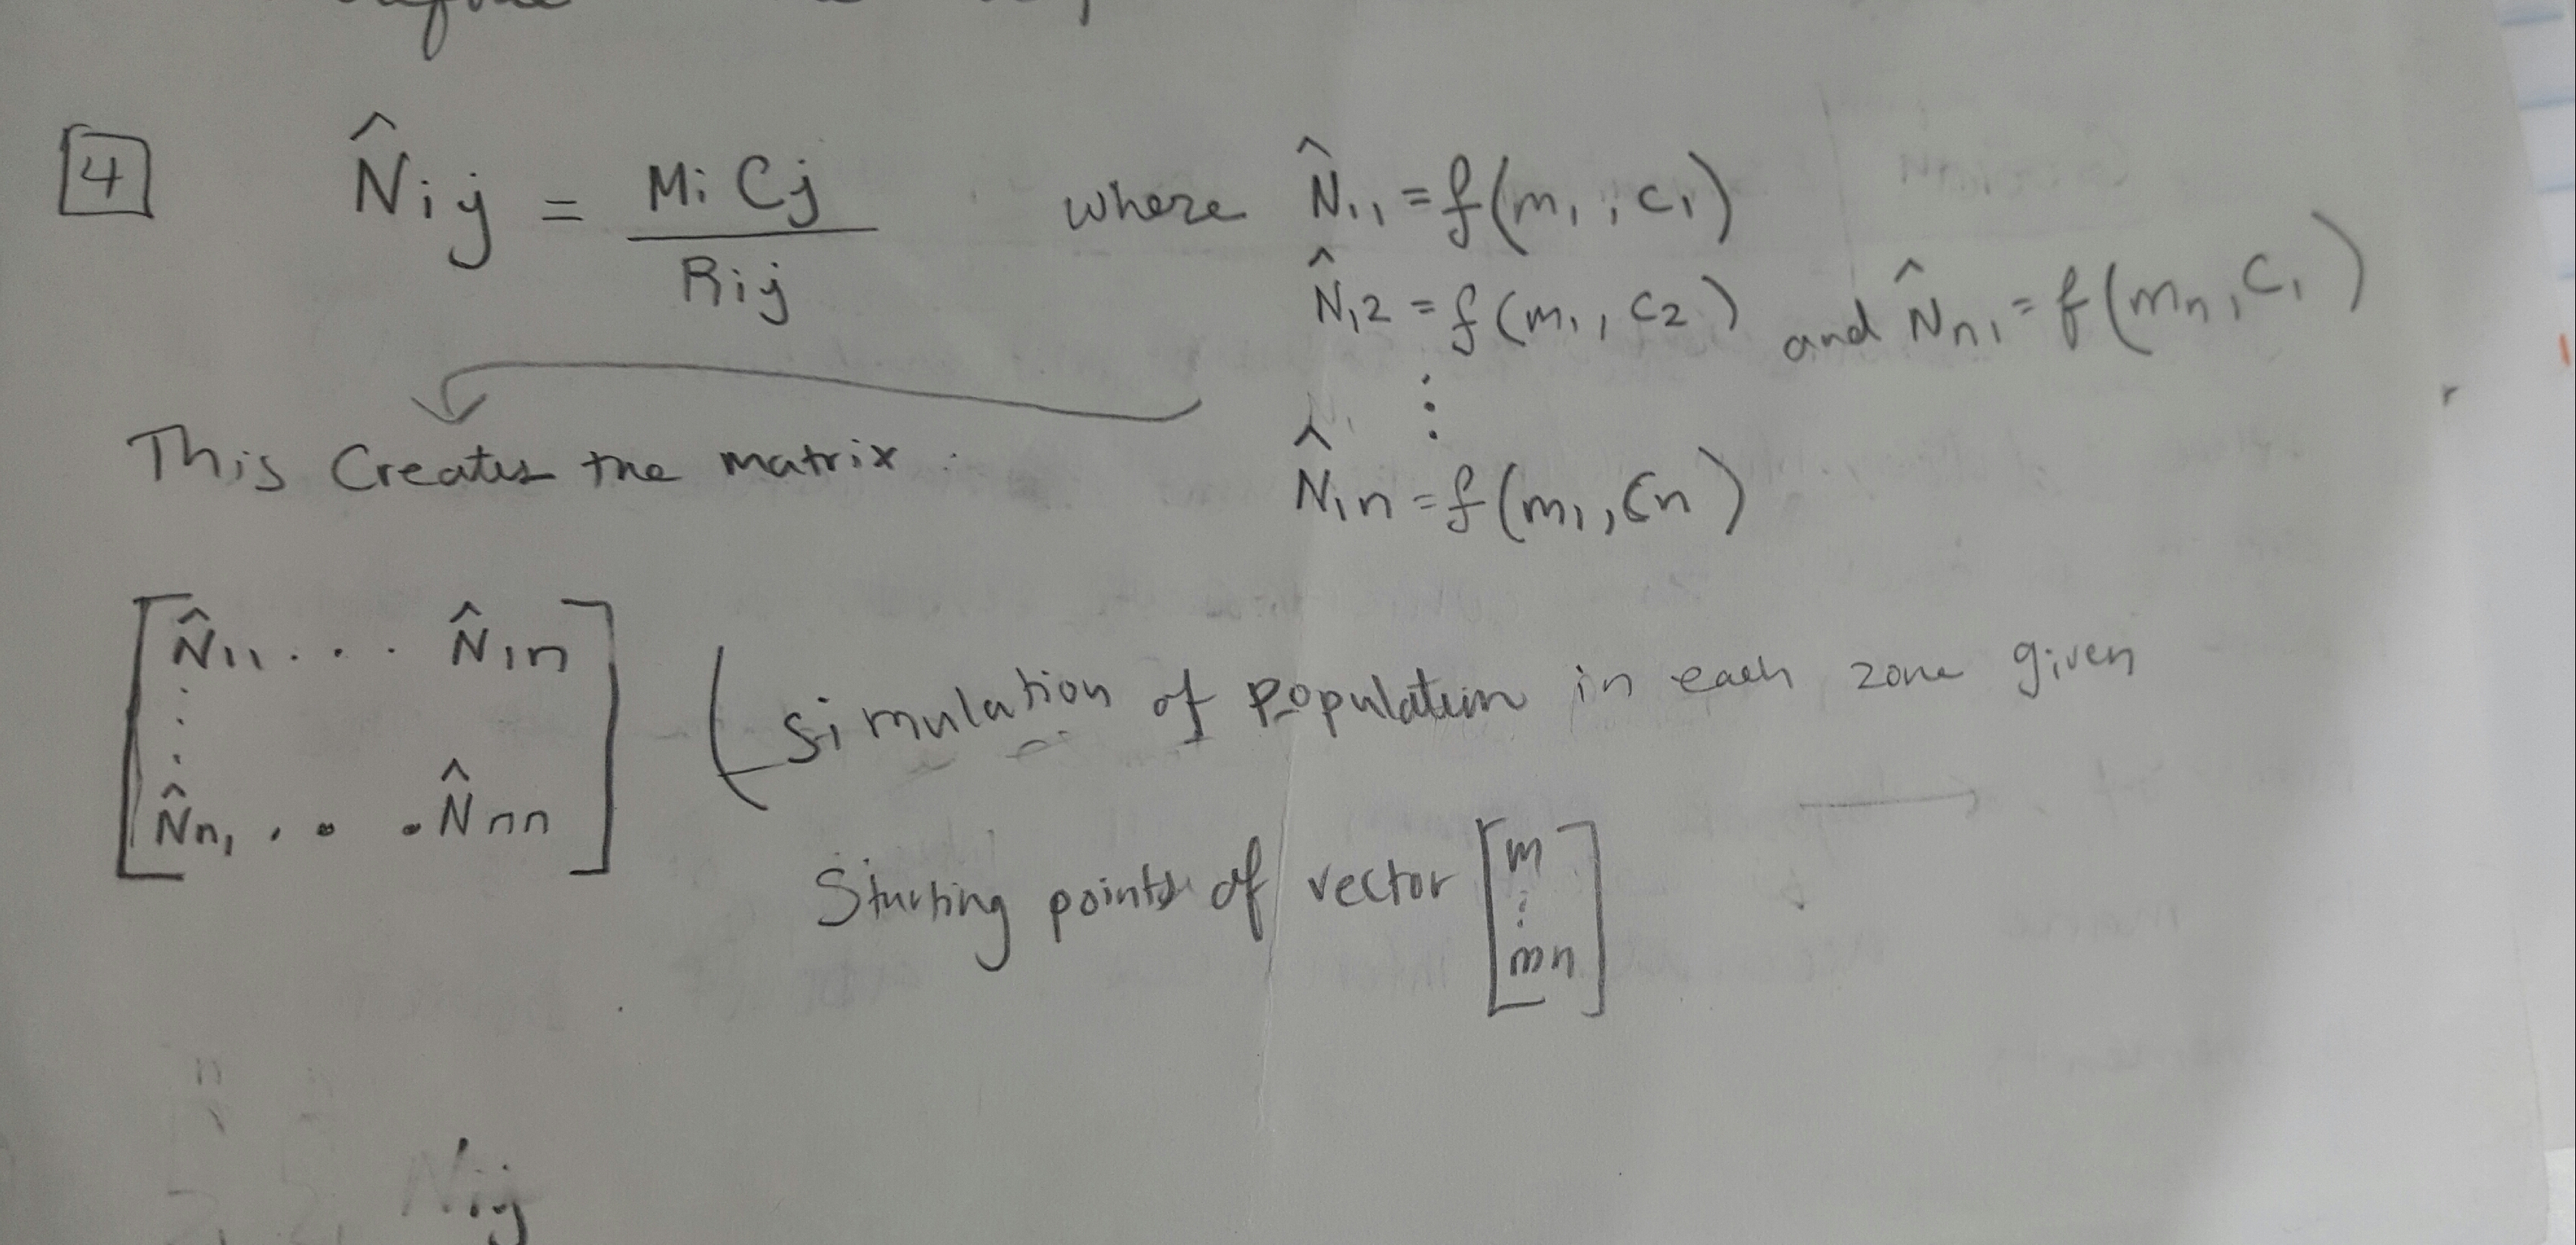 4 N̂ij = Mi Cj / Rij where N̂11 = f(m1, c1)
N̂12 = f(m1, c2) and N̂n1 = f(mn, c1)
⋮
This Creates the matrix.
N̂1n = f(m1, cn)
[N̂11 . . . N̂1n
⋮
N̂n1 . . . N̂nn]
(simulation of population in each zone given
Starting points of vector [m
⋮
mn]
Nij